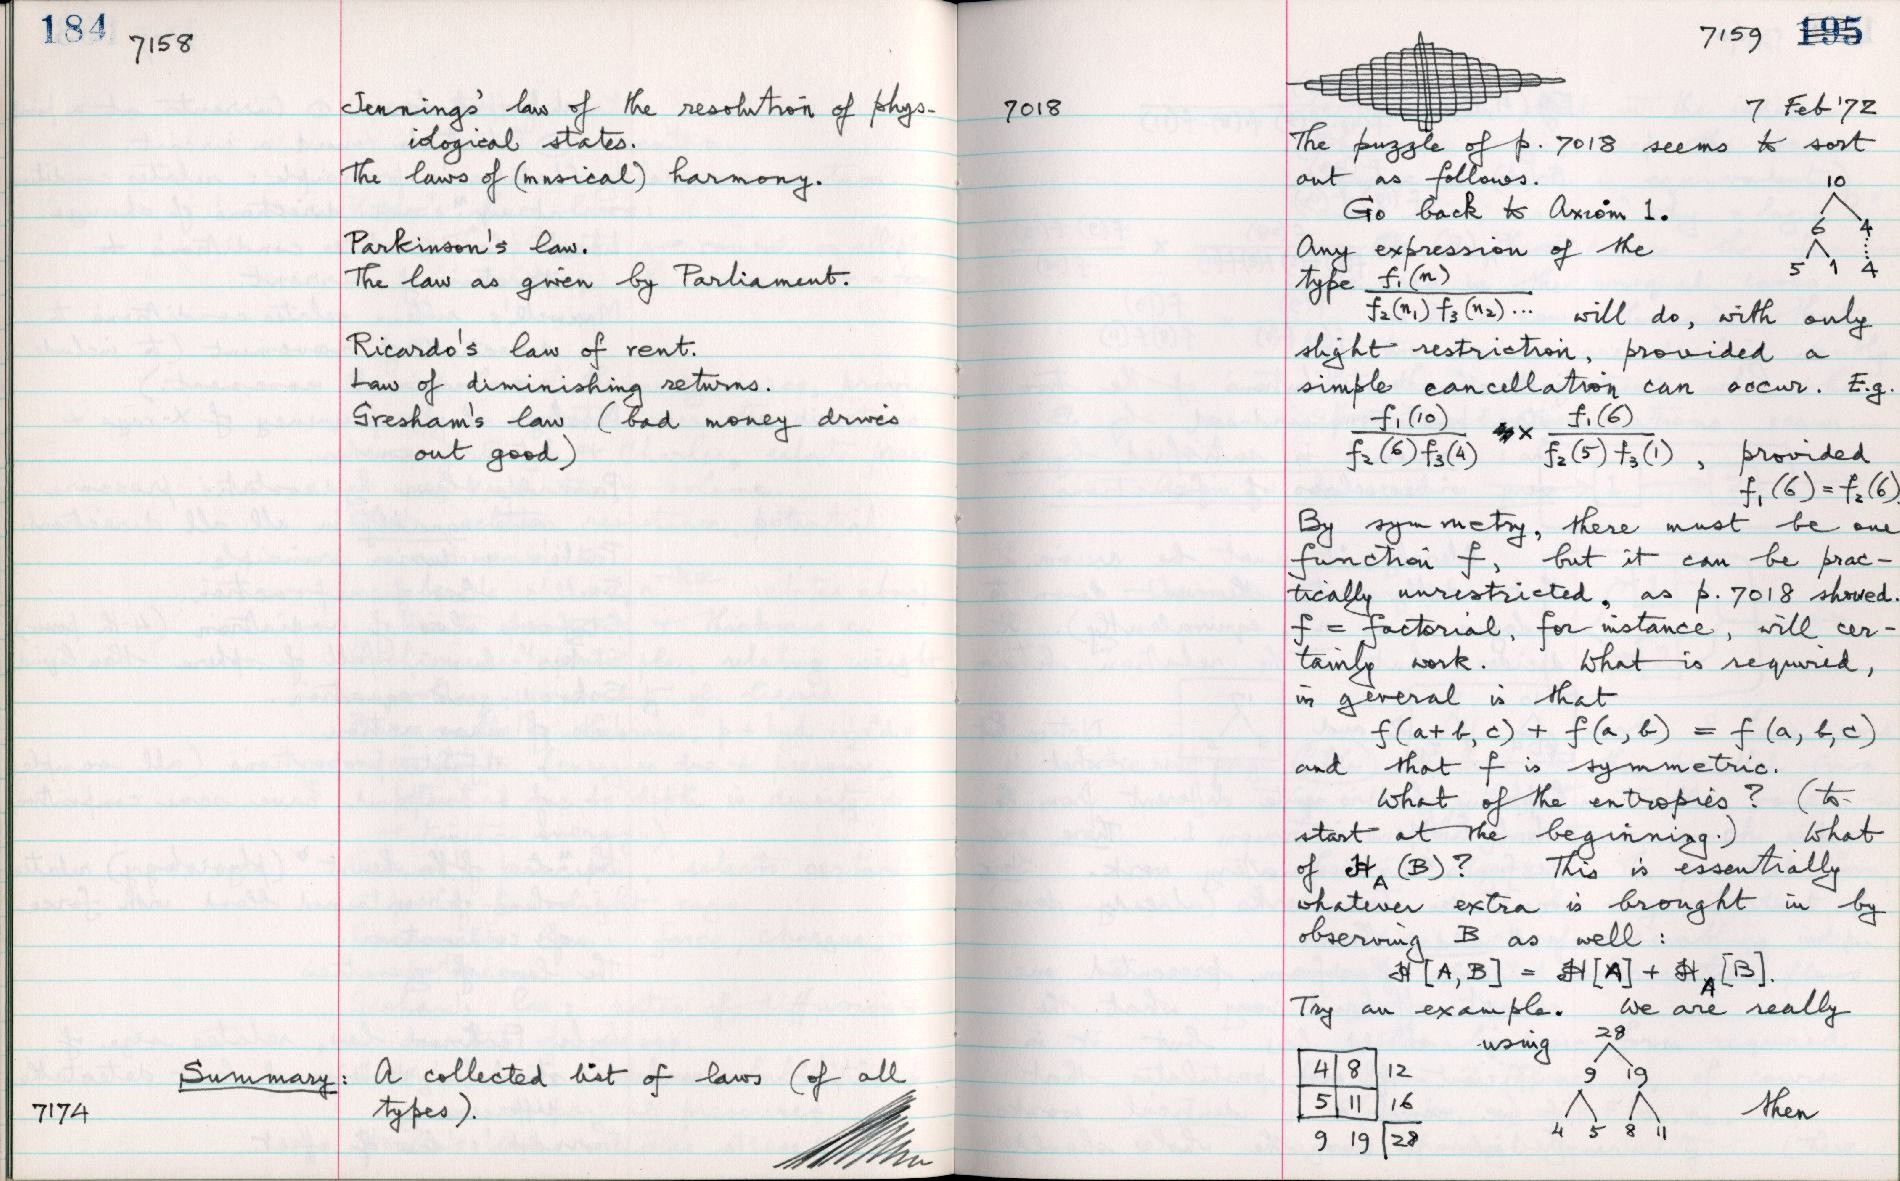 184
7158
Jennings' law of the resolution of phys-
iological states.
The laws of (musical) harmony.
Parkinson's law.
The law as given by Parliament.
Ricardo's law of rent.
Law of diminishing returns.
Gresham's law (bad money drives
out good)
Summary: A collected list of laws (of all
7174 types).
7159 195
7018 7 Feb '72
The puzzle of p. 7018 seems to sort
out as follows.
10
Go back to Axiom 1.
6 4
Any expression of the
5 1 4
type f₁(n) / f₂(n₁) f₃(n₂)... will do, with only
slight restriction, provided a
simple cancellation can occur. E.g.
f₁(10) / f₂(6) f₃(4) × f₁(6) / f₂(5) f₃(1), provided
f₁(6) = f₂(6)
By symmetry, there must be one
function f, but it can be prac-
tically unrestricted, as p. 7018 showed.
f = factorial, for instance, will cer-
tainly work. What is required,
in general is that
f(a+b, c) + f(a, b) = f(a, b, c)
and that f is symmetric.
What of the entropies? (to
start at the beginning.) What
of H_A(B)? This is essentially
whatever extra is brought in by
observing B as well:
H[A, B] = H[A] + H_A[B].
Try an example. We are really
using 28
4 8 12 9 19
5 11 16 then
4 5 8 11
9 19 28